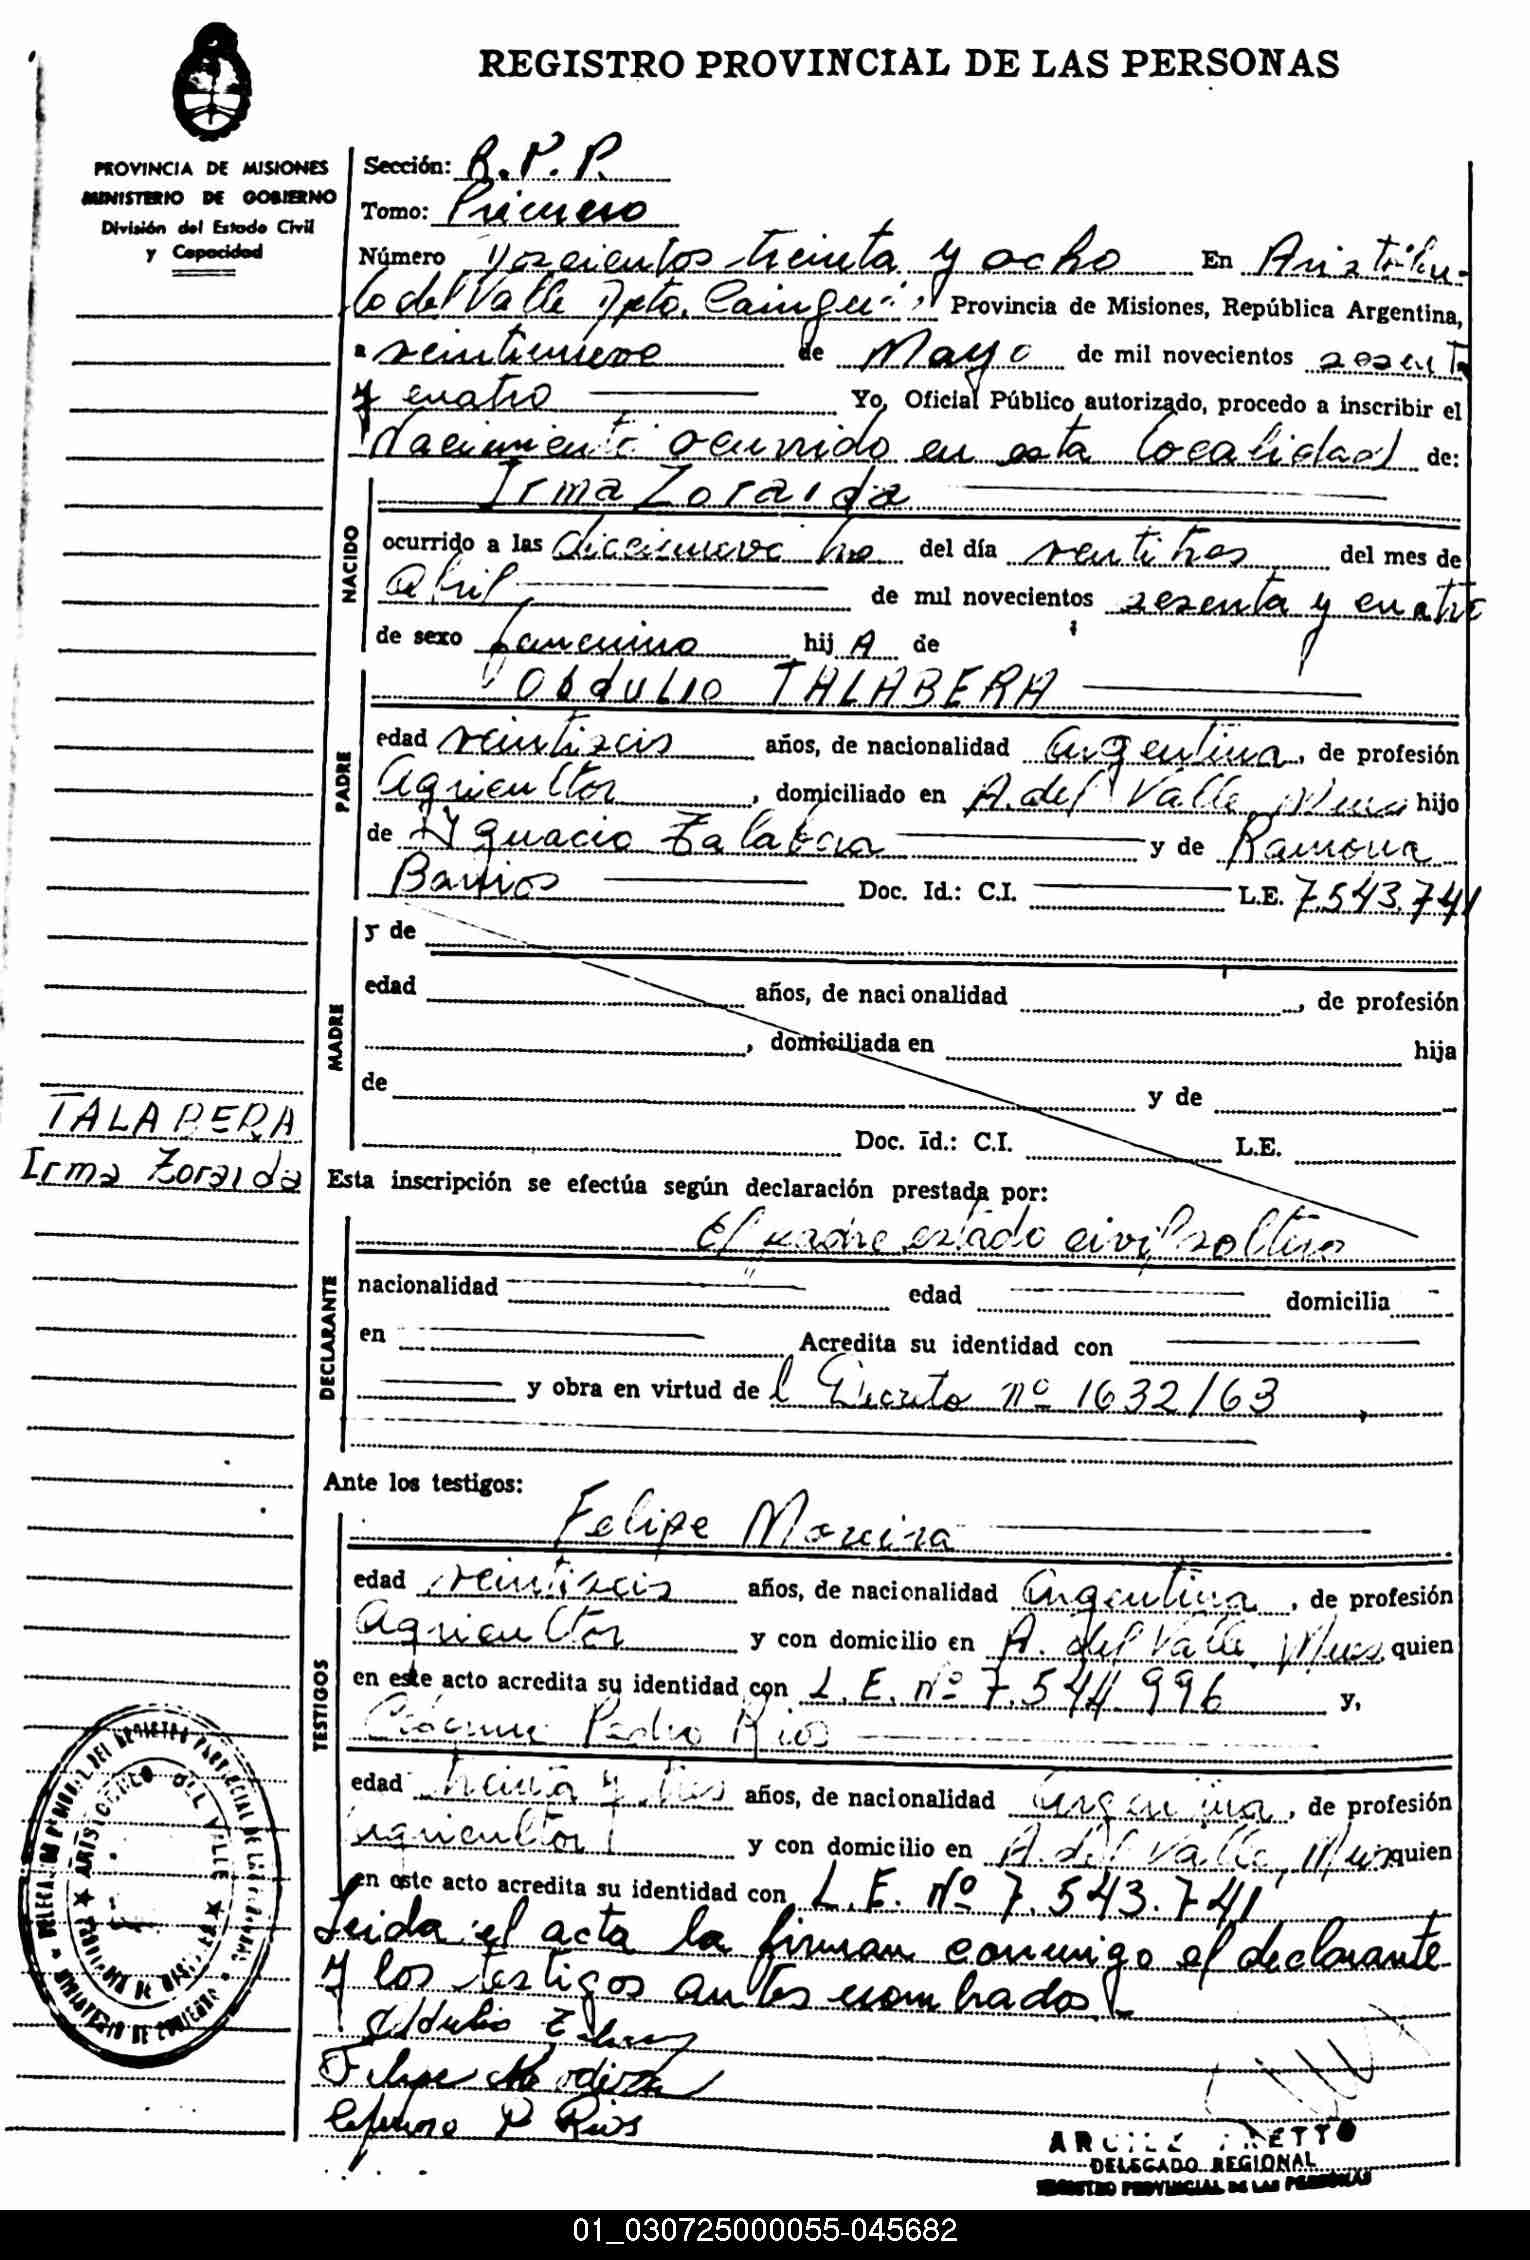 REGISTRO PROVINCIAL DE LAS PERSONAS
PROVINCIA DE MISIONES
MINISTERIO DE GOBIERNO
División del Estado Civil
y Capacidad
Sección: R.P.P.
Tomo: Primero
Número Doscientos treinta y ocho En Aristóbu-
lo del Valle Dpto. Cainguás Provincia de Misiones, República Argentina,
a veintinueve de Mayo de mil novecientos sesenta
y cuatro Yo, Oficial Público autorizado, procedo a inscribir el
Nacimiento ocurrido en esta localidad de:
Irma Zoraida
NACIDO
ocurrido a las diecinueve hs del día ventitres del mes de
Abril de mil novecientos sesenta y cuatro
de sexo femenino hij A de
Obdulio TALABERA
PADRE
edad veintiseis años, de nacionalidad Argentina, de profesión
Agricultor, domiciliado en A. del Valle Mnes hijo
de Ygnacio Talabera y de Ramona
Barrios Doc. Id.: C.I. L.E. 7.543.741
MADRE
y de
edad años, de nacionalidad , de profesión
, domiciliada en hija
de y de
Doc. Id.: C.I. L.E.
TALABERA
Irma Zoraida
Esta inscripción se efectúa según declaración prestada por:
El padre estado civil soltero
DECLARANTE
nacionalidad edad domicilia
en Acredita su identidad con
y obra en virtud de l Decreto nº 1632/63
Ante los testigos:
Felipe Moreira
TESTIGOS
edad veintiseis años, de nacionalidad Argentina, de profesión
Agricultor y con domicilio en A. del Valle, Mnes, quien
en este acto acredita su identidad con L.E. nº 7.544.996 y,
Pedro Rios
edad treinta y tres años, de nacionalidad Argentina, de profesión
Agricultor y con domicilio en A. del Valle, Mnes quien
en este acto acredita su identidad con L.E. Nº 7.543.741
Leida el acta la firman conmigo el declarante
y los testigos antes nombrados.-
Obdulio
Felipe
P Rios
DELEGADO REGIONAL
REGISTRO PROVINCIAL DE LAS PERSONAS
ARISTOBULO DEL VALLE
PROVINCIA DE MISIONES
MINISTERIO DE GOBIERNO
01_030725000055-045682